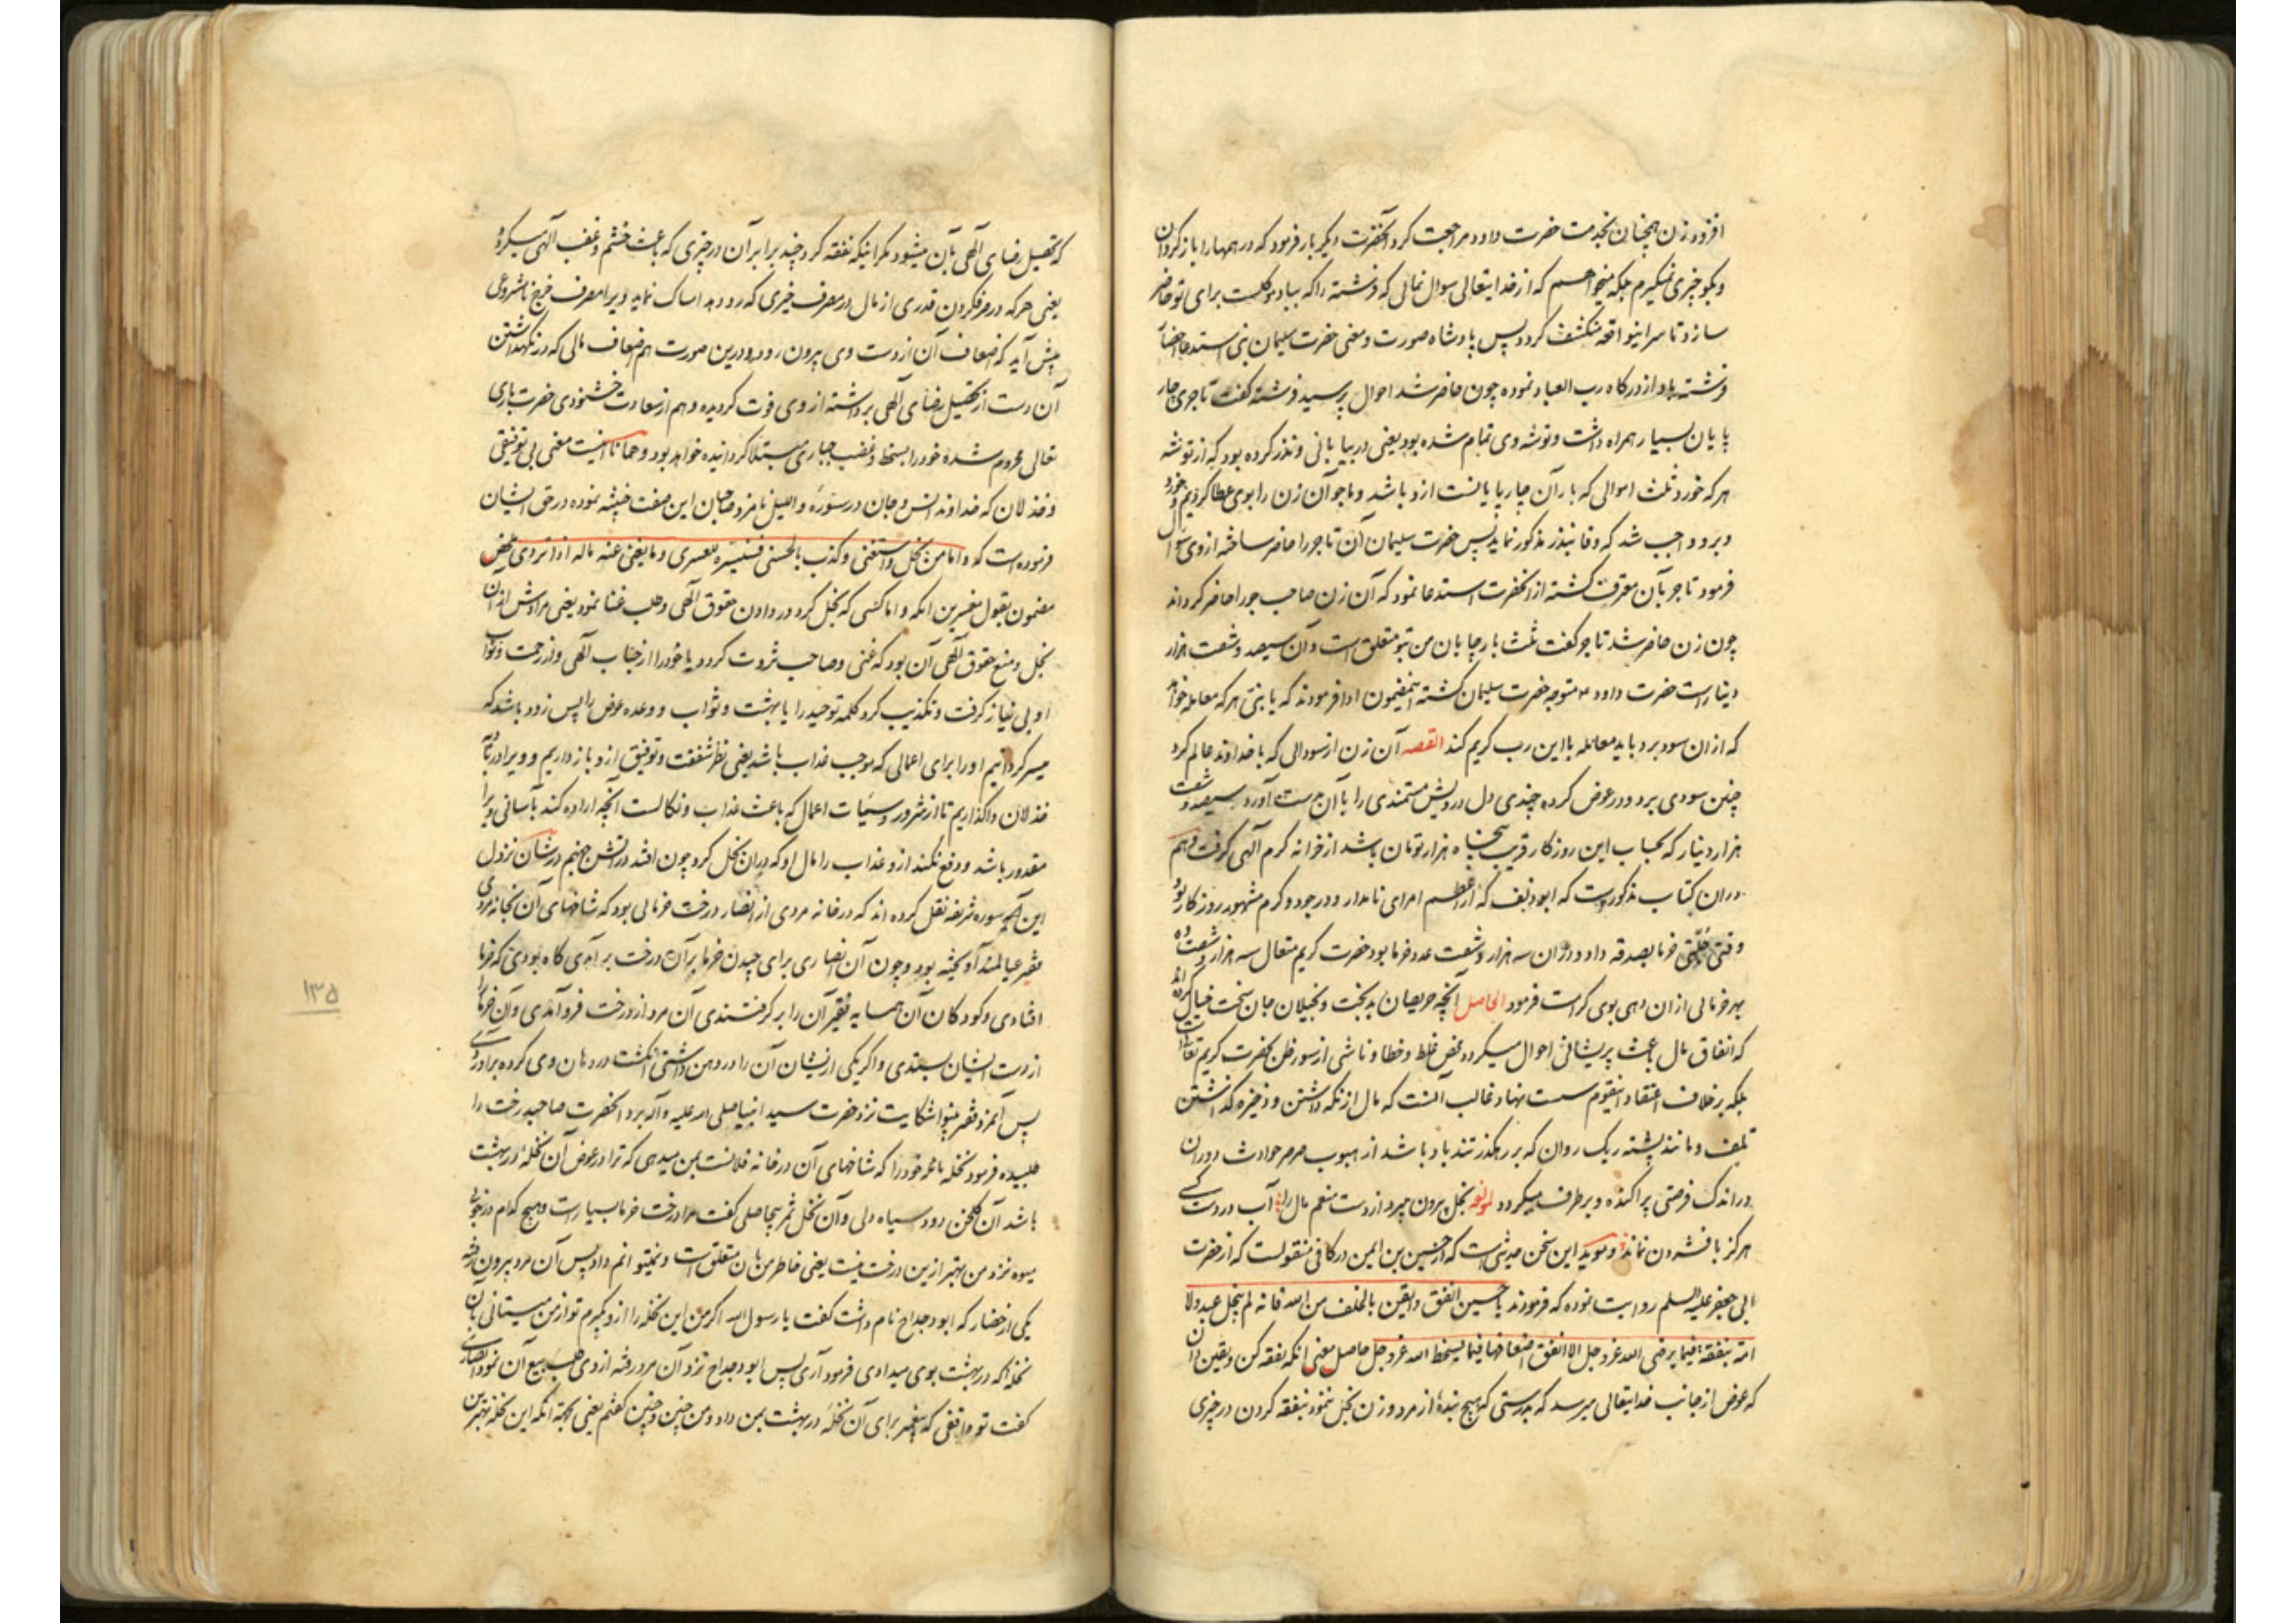 افزود زن همچنان بخدمت حضرت داود مراجعت کرد آنحضرت دیگر بار فرمود که درهمها را باز گردان
و بگو چیزی نمیگیرم بلکه میخواهم که از خدایتعالی سوال نمائی که فرشته را که بباد موکلست برای تو حاضر
سازد تا سر اینواقعه منکشف گردد پس پادشاه صورت و معنی حضرت سلیمان نبی استدعا احضار
فرشته باد از درگاه رب العباد نموده چون حاضر شد احوال پرسید فرشته گفت تاجری چار
پایان بسیار همراه داشت و توشه وی تمام شده بود یعنی در بیابانی و نذر کرده بود که از توشه
هر که خورد ثلث اموالی که بار آن چارپایانست ازو باشد و ما جو آن زن را بوی عطا کردیم خورد
و برو واجب شد که وفا بنذر مذکور نماید پس حضرت سلیمان آن تاجر را حاضر ساخته از وی سؤال
فرمود تاجر بآن معترف گشته از آنحضرت استدعا نمود که آن زن صاحب جو را حاضر گرداند
چون زن حاضر شد تاجر گفت ثلث بار چاپایان من بتو متعلق است و آن سیصد و شصت هزار
دینار است حضرت داود ع متوجه حضرت سلیمان گشته اینمضمون ادا فرمودند که یا بنی هر که معامله خواهد
که از ان سود برد باید معامله با این رب کریم کند القصه آن زن از سودائی که با خداوند عالم کرد
چنین سودی برد و در عوض گرده چندی دل درویش مستمندی را با آن بدست آورد سیصد و شصت
هزار دینار که بحساب این روزگار قریب پنجاه هزار تومان باشد از خزانه کرم آلهی گرفت و هم
در ان کتاب مذکور است که ابودلف که از اعظم امرای نامدار و در جود و کرم مشهور روزگار بود
وقتی خرما بصدقه داد و در ان سه هزار و شصت عدد خرما بود حضرت کریم متعال سه هزار و شصت ده
بهر خرمائی از ان دهی بوی کرامت فرمود الحاصل آنچه حریصان بدبخت و بخیلان جان سخت خیال کرده اند
که انفاق مال باعث پریشانی احوال میگردد محض غلط و خطا و ناشی از سوء ظن بحضرت کریم تعالی است
بلکه بر خلاف اعتقاد اینقوم سست نهاد غالب آنست که مال از نگه داشتن و ذخیره گذاشتن
تلف و مانند پشته ریک روان که بر رهگذر تند باد باشد از هبوب صرصر حوادث دوران
در اندک فرصتی پراکنده و برطرف میگردد لمولفه بخل بیرون میبرد از دست منعم مال را آب در دست کسی
هرگز با فشردن نماند و موید این سخن حدیثی است که از حسین بن ایمن در کافی منقولست که از حضرت
ابی جعفر علیه السلم روایت نموده که فرمودند یا حسین انفق و ایقن بالخلف من الله فانه لم یبخل عبد ولا
امة بنفقة فیما یرضی الله عز و جل الا انفق اضعافها فیما یسخط الله عز و جل حاصل معنی آنکه نفقه کن و یقین دان
که عوض از جانب خدایتعالی میرسد که بدرستی که هیچ بنده از مرد و زن بخل ننمود بنفقه کردن در چیزی
که تحصیل رضای آلهی بآن میشود مگر اینکه نفقه کرد چند برابر آن در چیزی که باعث خشم و غضب آلهی میگردد
یعنی هر که در صرف کردن قدری از مال در مصرف خیری که رو دهد امساک نماید ویرا مصرف خرج نامشروعی
پیش آید که اضعاف آن از دست وی بیرون رود و درین صورت هم اضعاف مالی که در نگهداشتن
آن دست از تحصیل رضای آلهی برداشته از وی فوت گردیده و هم از سعادت خشنودی حضرت باری
تعالی محروم شده خود را بسخط و غضب جباری مبتلا گردانیده خواهد بود و همانا اینست معنی بی توفیقی
و خذلان که خداوند انس و جان در سوره واللیل نامزد صاحبان این صفت خبیثه نموده در حق ایشان
فرموده است که و اما من بخل و استغنی و کذب بالحسنی فسنیسره للعسری و ما یغنی عنه ماله اذا تردی محض
مضمون بقول مفسرین آنکه و اما کسی که بخل کرد در دادن حقوق آلهی و طلب غنا نمود یعنی مرادش از ان
بخل و منع حقوق آلهی آن بود که غنی و صاحب ثروت گردد یا خود را از جناب آلهی و از رحمت و ثواب
او بی نیاز گرفت و تکذیب کرد کلمه توحید را یا بهشت و ثواب و وعده عوض را پس زود باشد که
میسر گردانیم او را برای اعمالی که موجب عذاب باشد یعنی نظر شفقت و توفیق ازو باز داریم و ویرا در تیه
خذلان واگذاریم تا از شرور و سیئات اعمال که باعث عذاب و نکالست آنچه اراده کند بآسانی ویرا
مقدور باشد و دفع نکند ازو عذاب را مال او که بدان بخل کرد چون افتد در آتش جهنم در شان نزول
این سوره شریفه نقل کرده اند که در خانه مردی از انصار درخت خرمائی بود که شاخهای آن بخانه مردی
فقیر عیالمند آویخته بود و چون آن انصاری برای چیدن خرما بر آن درخت بر آمدی گاه بودی که خرما
افتادی و کودکان آن همسایه فقیر آن را بر گرفتندی آن مرد از درخت فرود آمدی و آن خرما را
از دست ایشان بستدی و اگر یکی ازیشان آن را در دهن داشتی انگشت در دهان وی کرده برآوردی
پس آنمرد فقیر بینوا شکایت نزد حضرت سید انبیا صلی الله علیه وآله برد آنحضرت صاحبدرخت را
طلبیده فرمود نخله نامه خود را که شاخهای آن در خانه فلانست بمن میدهی که ترا در عوض آن نخله در بهشت
باشد آن گلخن دود سیاه دلی و آن نخل ثمر بیحاصلی گفت مرا درخت خرما بسیار است و هیچ کدام در خوبی
میوه نزد من بهتر ازین درخت نیست یعنی خاطر من بآن متعلق است و نمیتوانم داد پس آن مرد بیرون رفته
یکی از حضار که ابو دحداح نام داشت گفت یا رسول الله اگر من این نخله را ازو بگیرم تو از من میستانی بآن
نخله که در بهشت بوی میدادی فرمود آری پس ابو دحداح نزد آن مرد رفته از وی طلب بیع آن نمود انصاری
گفت تو واقفی که پیغمبر برای آن نخله در بهشت بمن داد و من چنین و چنین گفتم یعنی بجهة آنکه این نخله بهترین
١٣٥